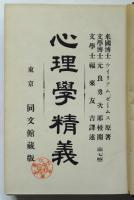 米國博士 ウイリアム、ゼームス 原著
文學博士 元良勇次郎 校閲
文學士 福來友吉 譯述
心理學精義
東京 同文館藏版